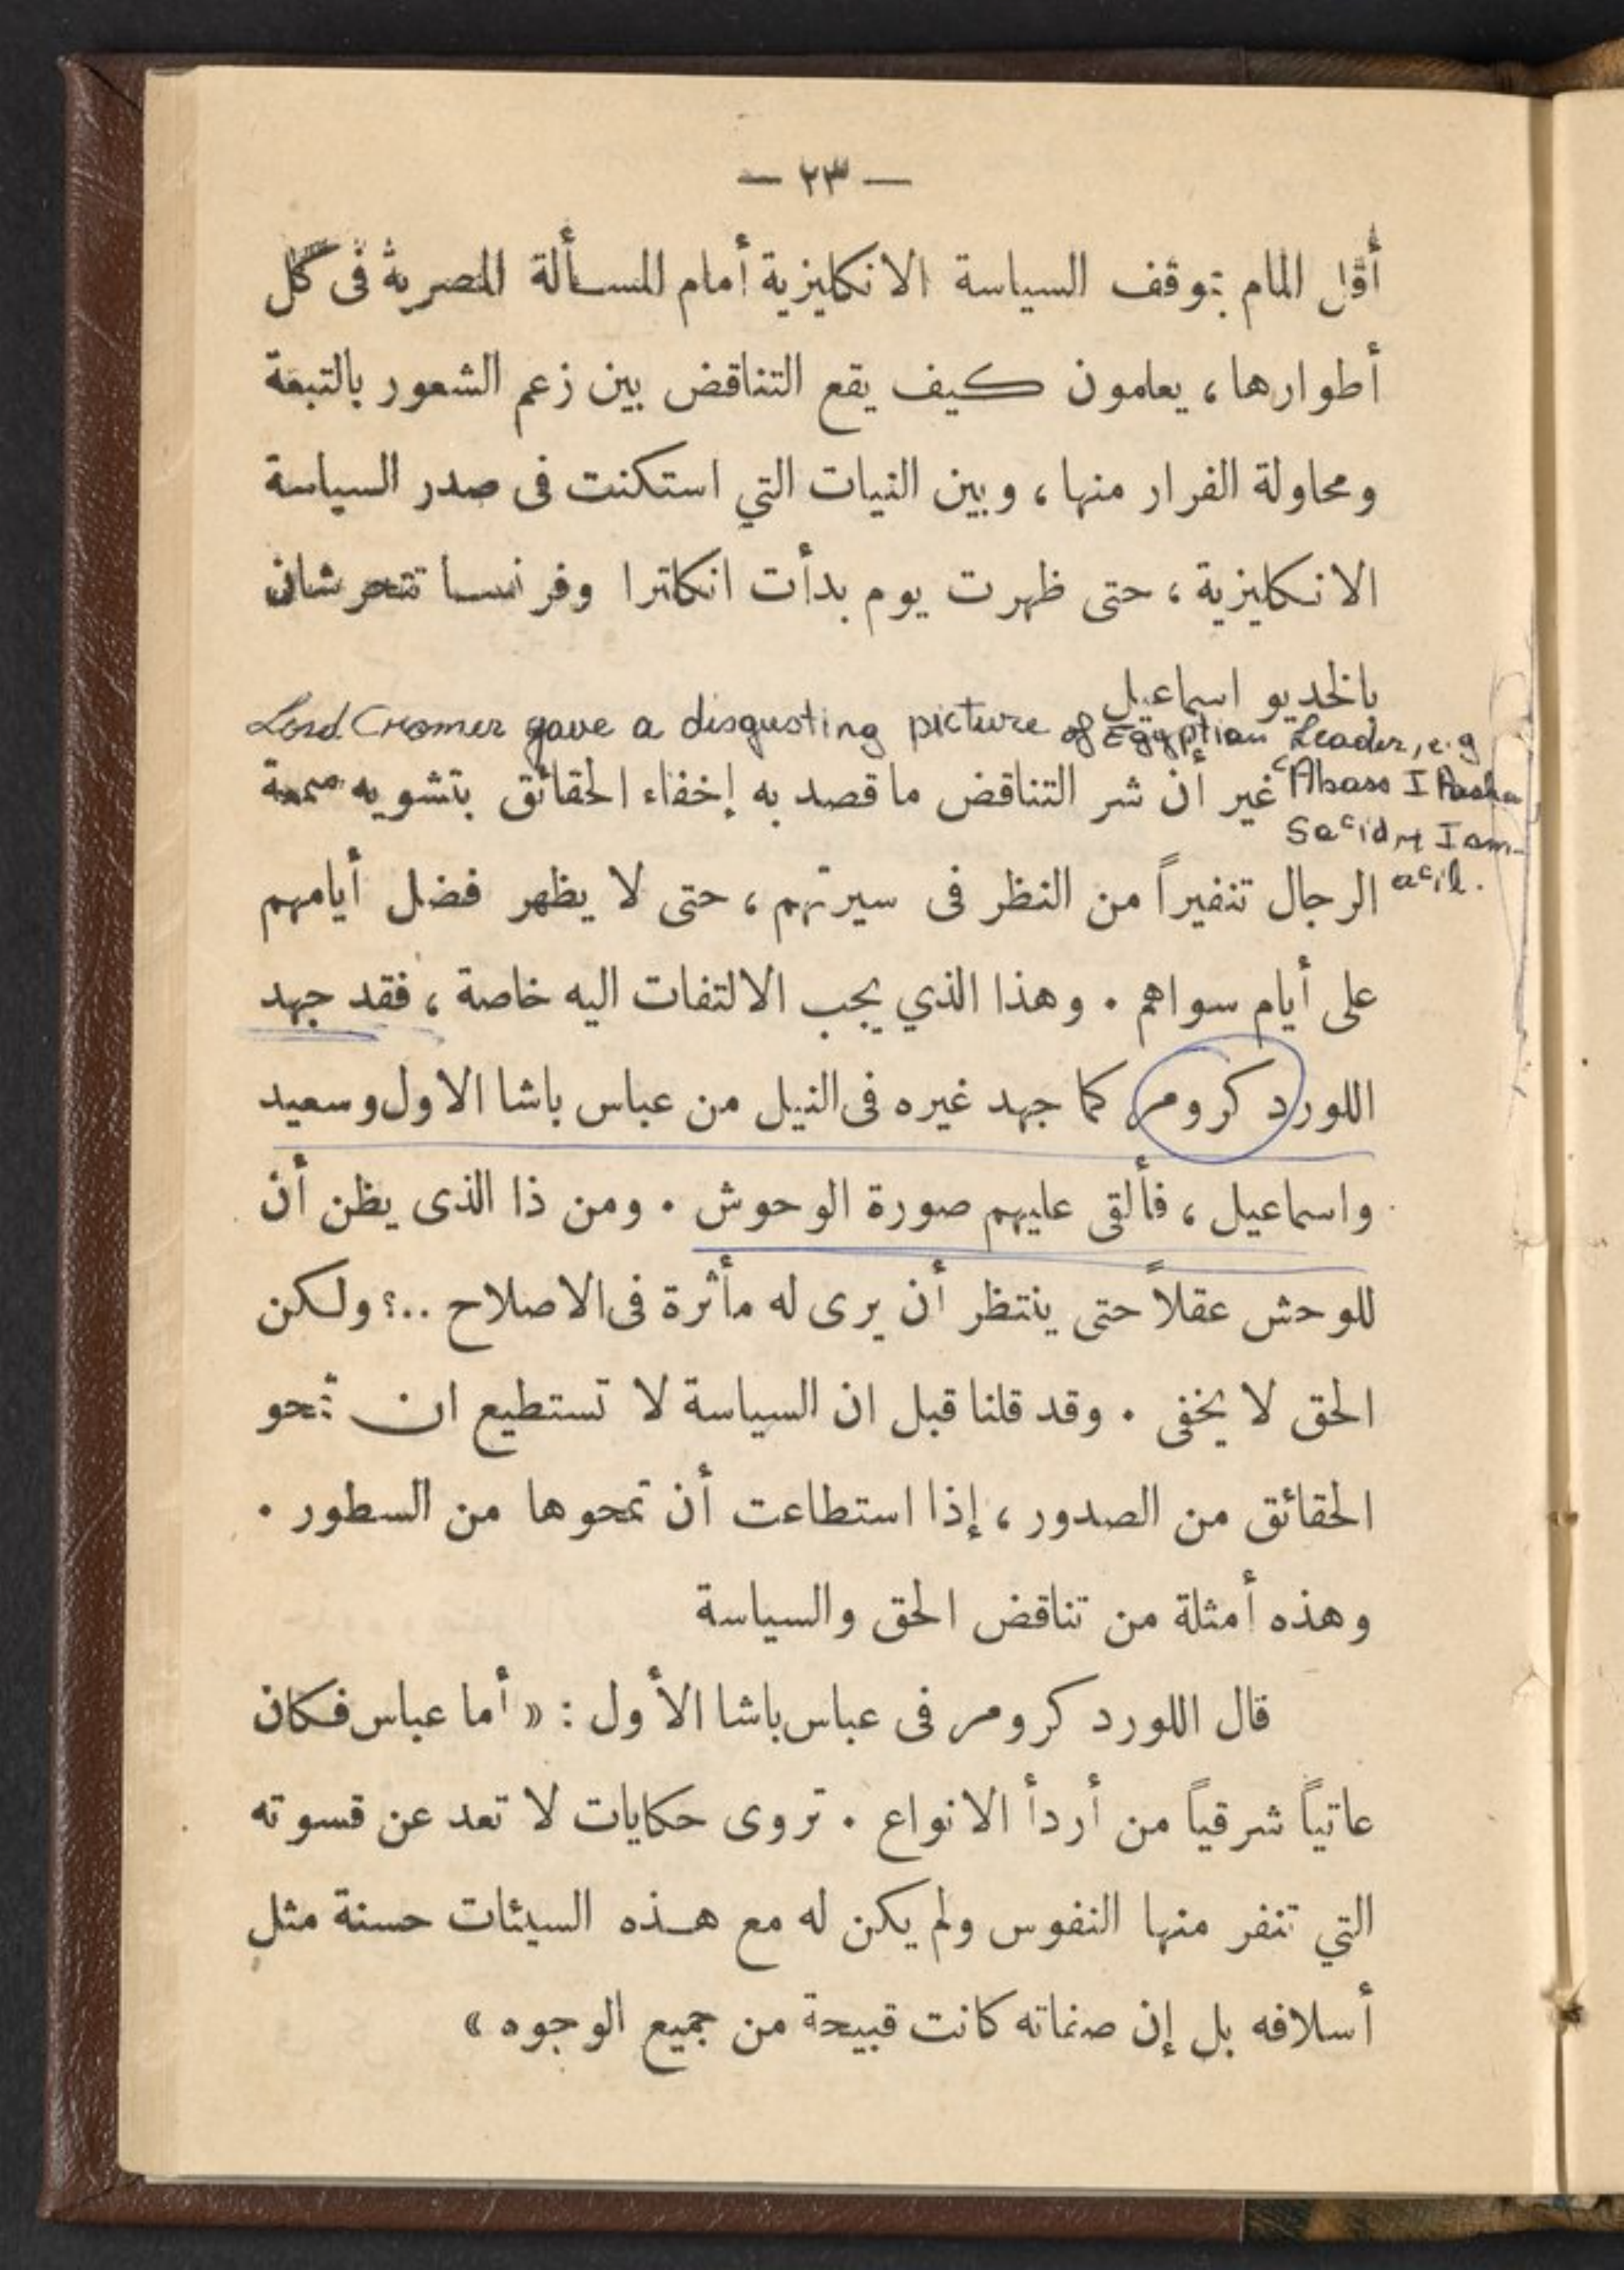 — ٢٣ —
أقل المام بموقف السياسة الانكليزية أمام المسألة المصرية فى كل
أطوارها ، يعلمون كيف يقع التناقض بين زعم الشعور بالتبعة
ومحاولة الفرار منها ، وبين النيات التي استكنت فى صدر السياسة
الانكليزية ، حتى ظهرت يوم بدأت انكلترا وفرنسا تتحرشان
بالخديو اسماعيل
Lord Cromer gave a disgusting picture of Egyptian Leader, e.g
ʿAbass I Pasha
Saʿid & Ism-
aʿil.
غير أن شر التناقض ما قصد به إخفاء الحقائق بتشويه سمعة
الرجال تنفيراً من النظر فى سيرتهم ، حتى لا يظهر فضل أيامهم
على أيام سواهم . وهذا الذي يجب الالتفات اليه خاصة ، فقد جهد
اللورد كرومر كما جهد غيره فى النيل من عباس باشا الاول وسعيد
واسماعيل ، فألقى عليهم صورة الوحوش . ومن ذا الذى يظن أن
للوحش عقلاً حتى ينتظر أن يرى له مأثرة فى الاصلاح ..؟ ولكن
الحق لا يخفى . وقد قلنا قبل ان السياسة لا تستطيع ان تمحو
الحقائق من الصدور ، إذا استطاعت أن تمحوها من السطور .
وهذه أمثلة من تناقض الحق والسياسة
قال اللورد كرومر فى عباس باشا الأول : « أما عباس فكان
عاتياً شرقياً من أردأ الانواع . تروى حكايات لا تعد عن قسوته
التي تنفر منها النفوس ولم يكن له مع هذه السيئات حسنة مثل
أسلافه بل إن صفاته كانت قبيحة من جميع الوجوه »